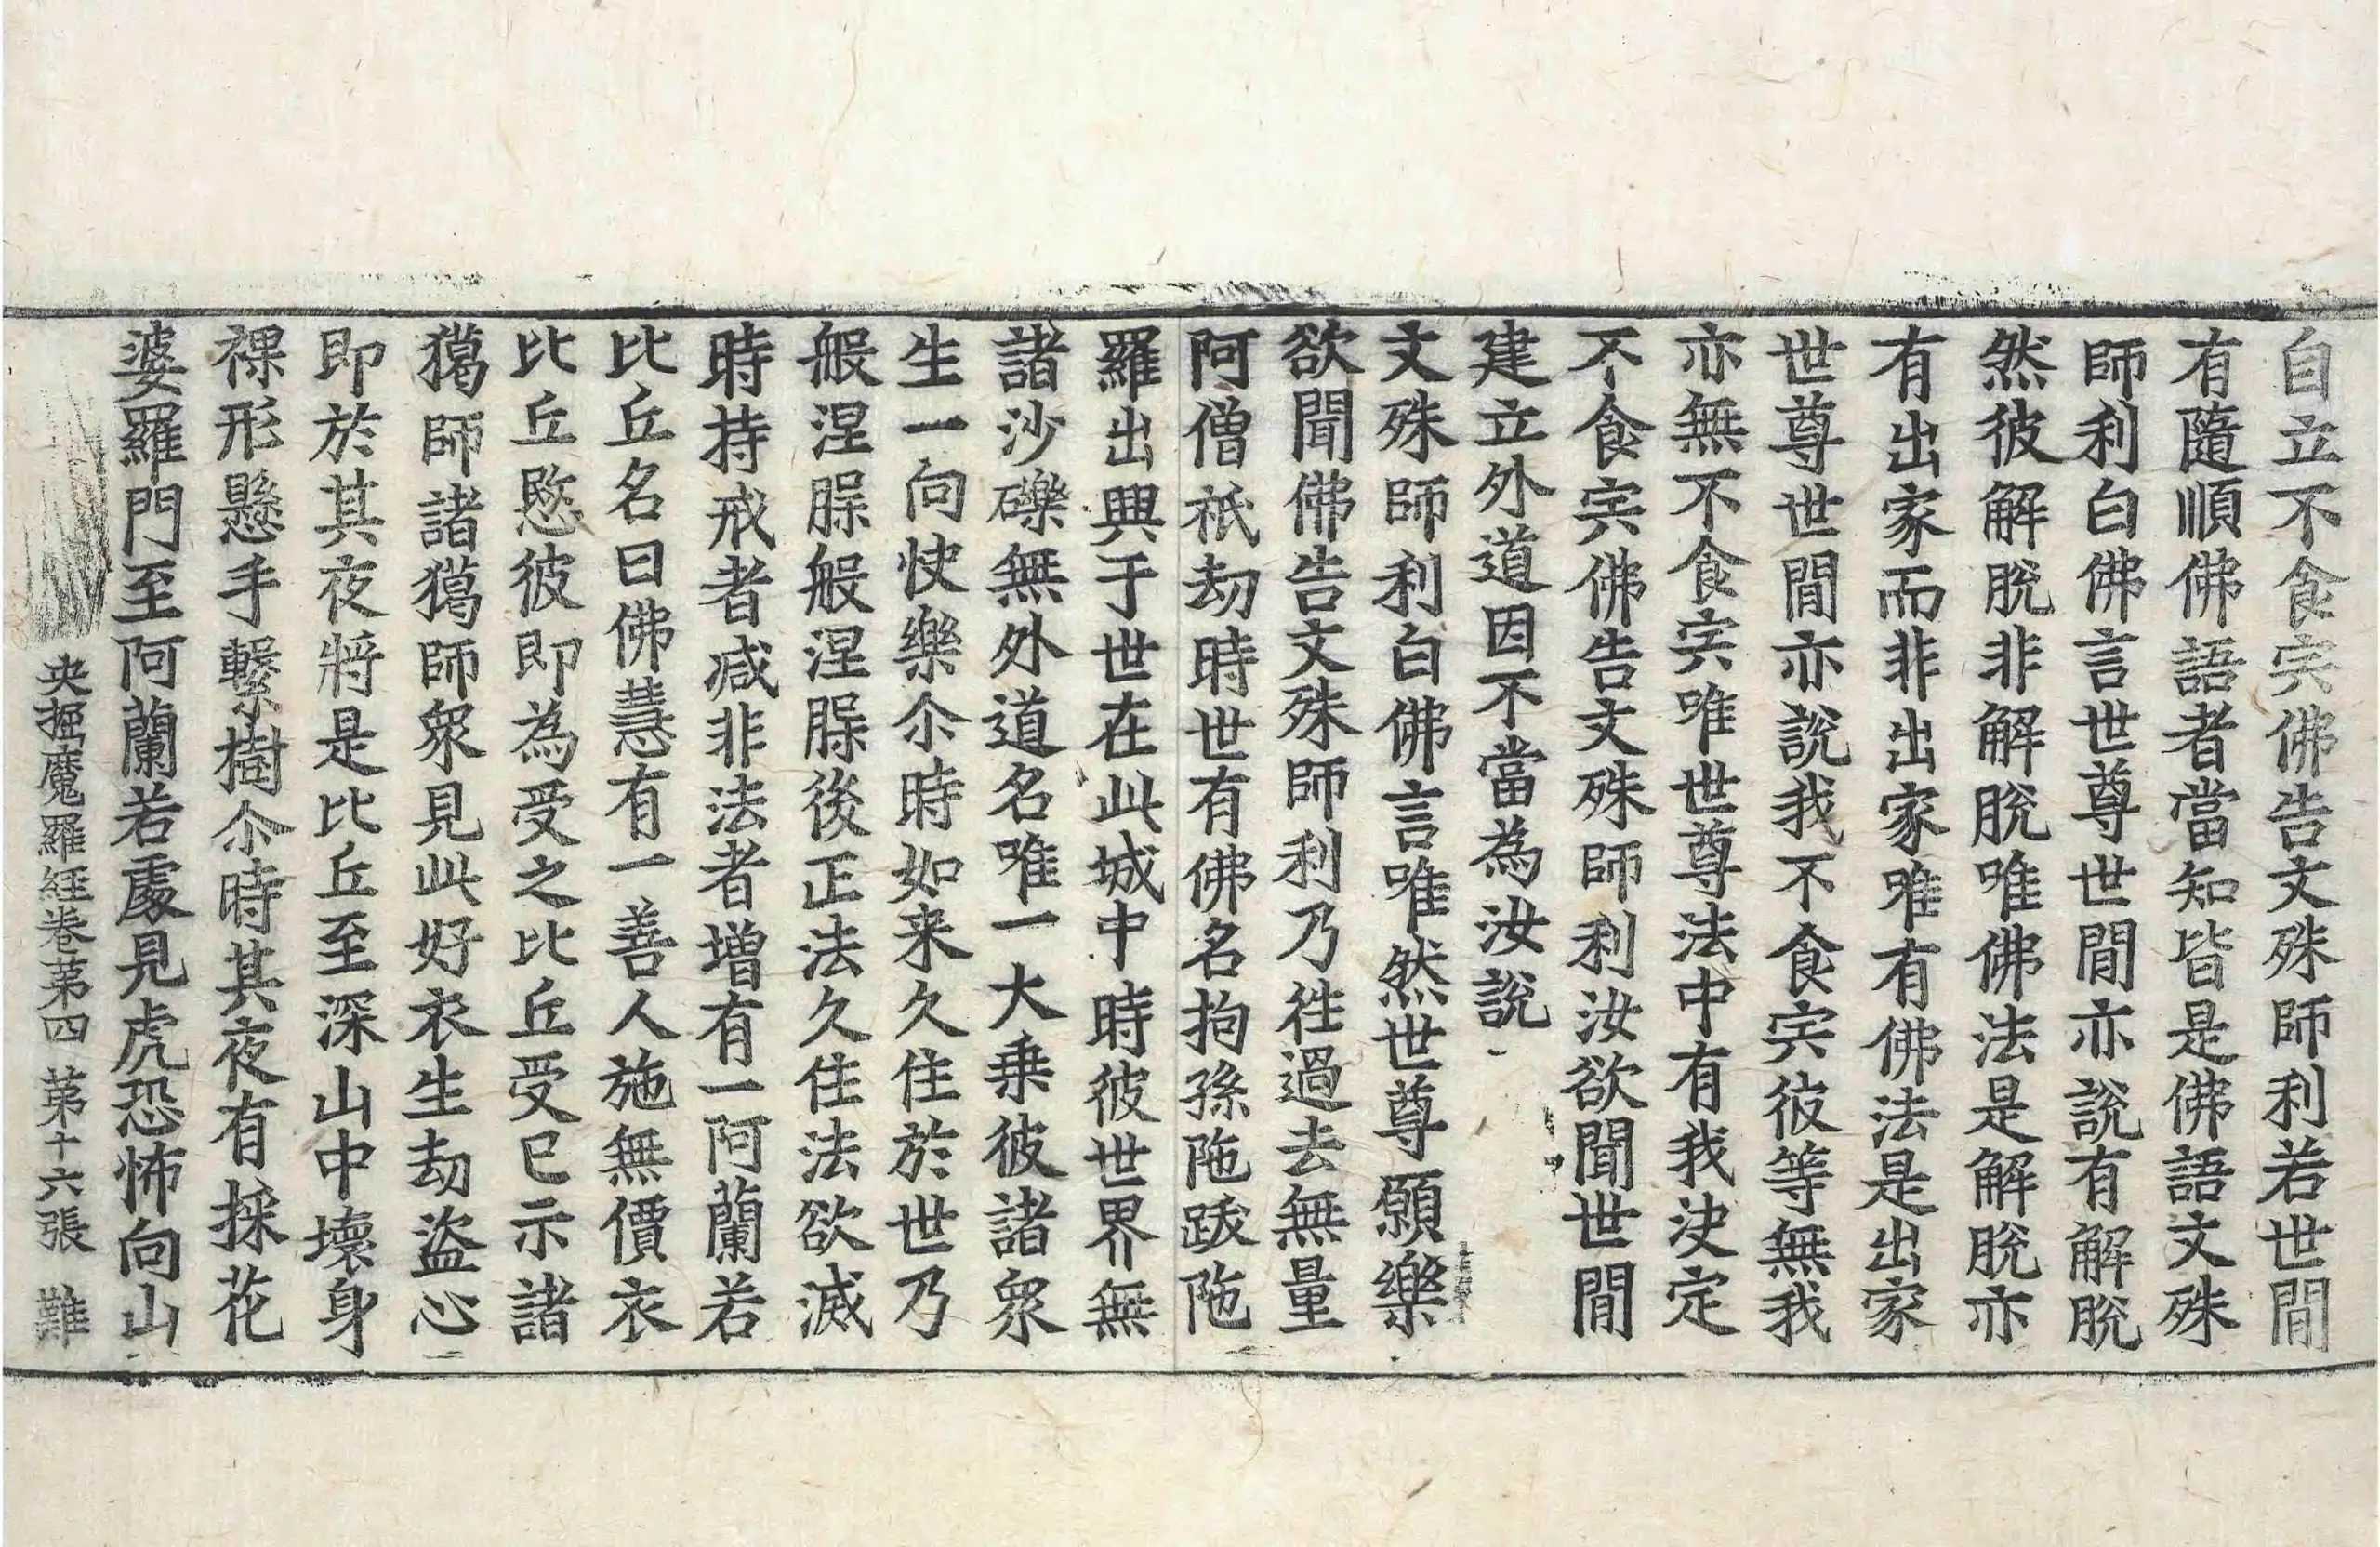 自立不食宍佛告文殊師利若世間
有隨順佛語者當知皆是佛語文殊
師利白佛言世尊世間亦說有解脫
然彼解脫非解脫唯佛法是解脫亦
有出家而非出家唯有佛法是出家
世尊世間亦說我不食宍彼等無我
亦無不食宍唯世尊法中有我決定
不食宍佛告文殊師利汝欲聞世間
建立外道因不當為汝說
文殊師利白佛言唯然世尊願樂
欲聞佛告文殊師利乃往過去無量
阿僧祇劫時世有佛名拘孫陁跋陁
羅出興于世在此城中時彼世界無
諸沙礫無外道名唯一大乗彼諸衆
生一向快樂尒時如来久住於世乃
般涅脲般涅脲後正法久住法欲滅
時持戒者减非法者增有一阿蘭若
比丘名曰佛慧有一善人施無價衣
比丘愍彼即為受之比丘受已示諸
獦師諸獦師衆見此好衣生劫盜心
即於其夜將是比丘至深山中壞身
裸形懸手繫樹尒時其夜有採花
婆羅門至阿蘭若處見虎恐怖向山
央掘魔羅經卷苐四 苐十六張 難